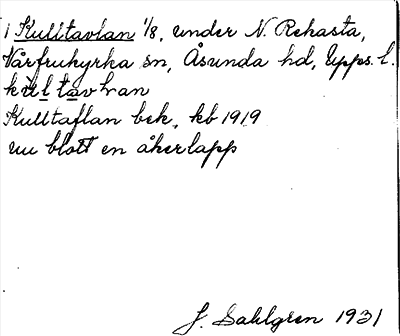 1 Kulltavlan 1/8, under N. Rehasta,
Vårfrukyrka sn, Åsunda hd, Upps. l.
kultavlran
Kulltaflan bek, kb 1919
nu blott en åkerlapp
J. Sahlgren 1931